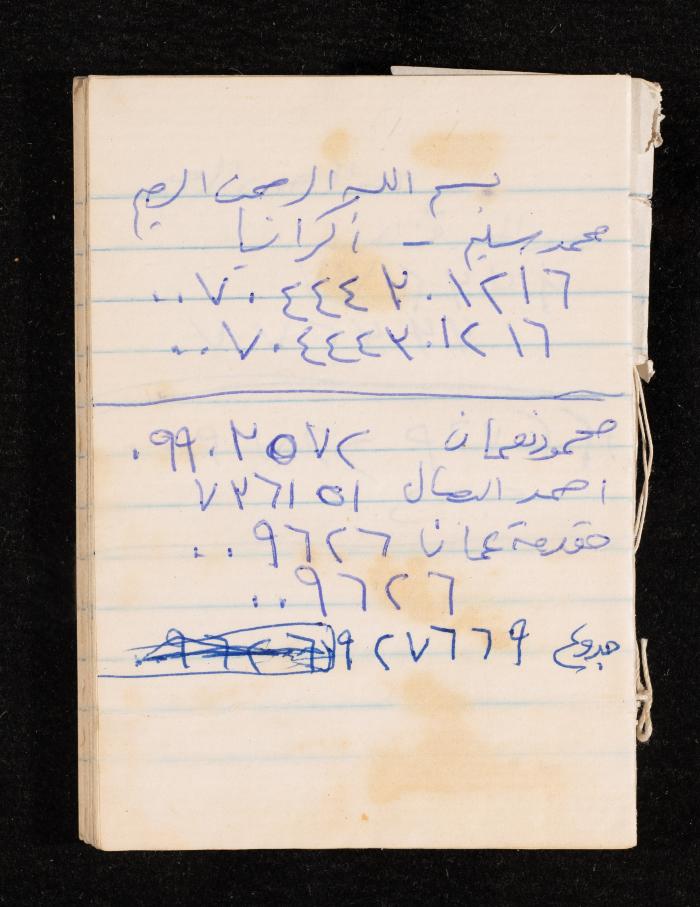 بسم الله الرحمن الرحيم
محمد سليم - أكرانيا
٠٠٧٠٤٤٤٣٠١٢١٦
٠٠٧٠٤٤٤٣٠١٢١٦
محمود نعمان ٠٩٩٠٣٥٧٢
احمد البصال ٧٣٦١٥١
مقدمة عمان ٠٠٩٦٢٦
٠٠٩٦٢٦
جدوع ٩٢٧٦٦٩